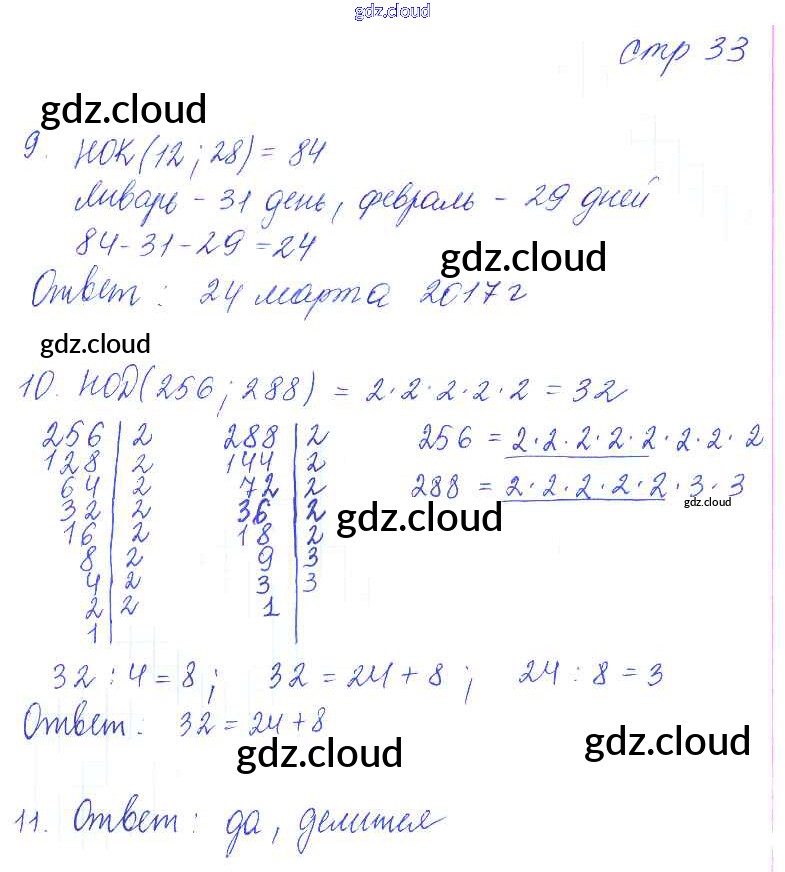 gdz.cloud
стр 33
gdz.cloud
9. НОК(12; 28) = 84
Январь - 31 день, февраль - 29 дней
84-31-29=24
gdz.cloud
Ответ: 24 марта 2017 г
gdz.cloud
10. НОД(256; 288) = 2·2·2·2·2 = 32
256 | 2 288 | 2 256 = 2·2·2·2·2·2·2·2
128 | 2 144 | 2
64 | 2 72 | 2 288 = 2·2·2·2·2·3·3
gdz.cloud
32 | 2 36 | 2
gdz.cloud
16 | 2 18 | 2
8 | 2 9 | 3
4 | 2 3 | 3
2 | 2 1
1
32 : 4 = 8; 32 = 24 + 8; 24 : 8 = 3
Ответ: 32 = 24 + 8
gdz.cloud
gdz.cloud
11. Ответ: да, делится